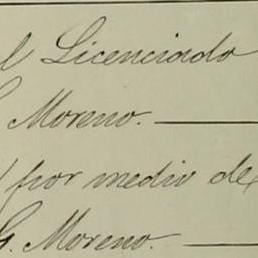 l Licenciado
G. Moreno.
por medio de
G. Moreno.